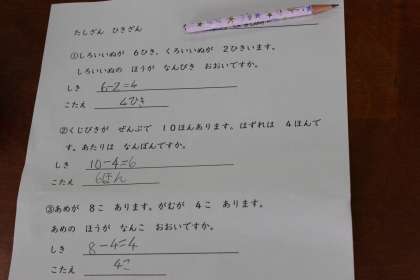 たしざん　ひきざん
①しろいいぬが　6ひき、くろいいぬが　2ひきいます。
しろいいぬの　ほうが　なんびき　おおいですか。
しき　6-2=4
こたえ　4ひき
②くじびきが　ぜんぶで　10ほんあります。はずれは　4ほんで
す。あたりは　なんぼんですか。
しき　10-4=6
こたえ　6ぽん
③あめが　8こ　あります。がむが　4こ　あります。
あめの　ほうが　なんこ　おおいですか。
しき　8-4=4
こたえ　4こ